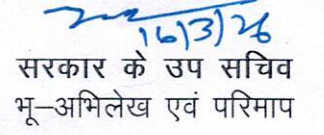 16/3/26
सरकार के उप सचिव
भू–अभिलेख एवं परिमाप